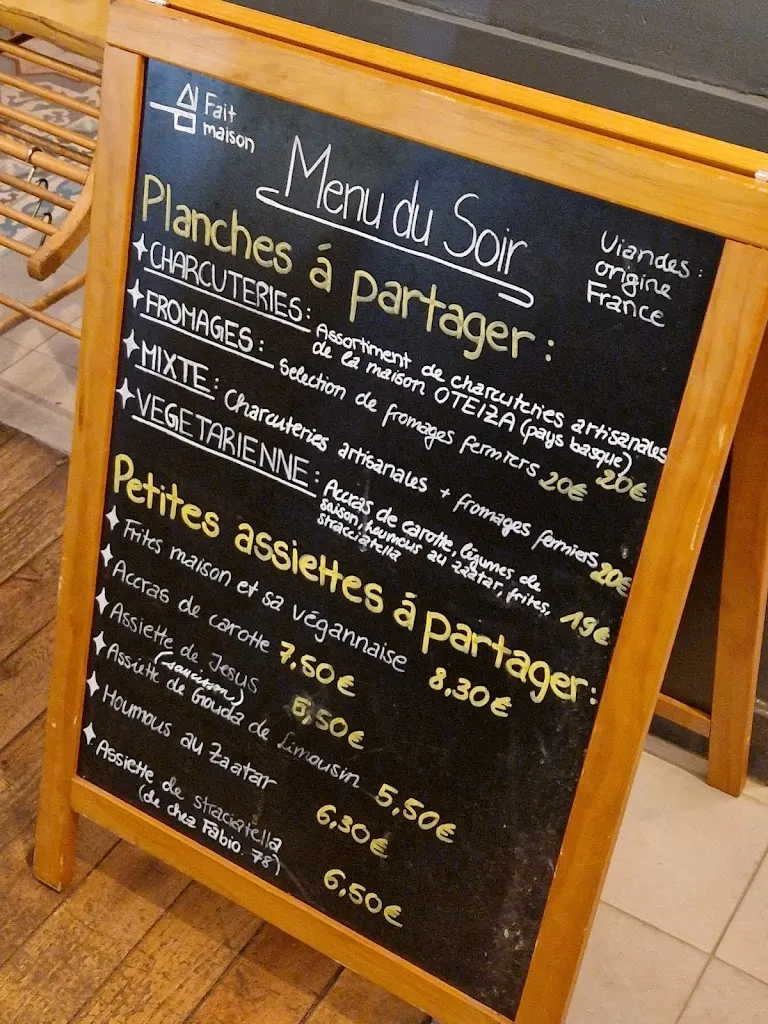 Fait
maison
Menu du Soir
Viandes :
origine
France
Planches á partager :
CHARCUTERIES : Assortiment de charcuteries artisanales
de la maison OTEIZA (pays basque) 20€
FROMAGES : Selection de fromages fermiers 20€
MIXTE : Charcuteries artisanales + fromages fermiers 20€
VEGETARIENNE : Accras de carotte, légumes de
saison, houmous au zaatar, frites,
stracciatella 19€
Petites assiettes á partager :
Frites maison et sa végannaise 8,30€
Accras de carotte 7,50€
Assiette de Jesus
(saucisson) 5,50€
Assiette de Gouda de Limousin 5,50€
Houmous au Zaatar 6,30€
Assiette de straciatella
(de chez Fabio 78) 6,50€